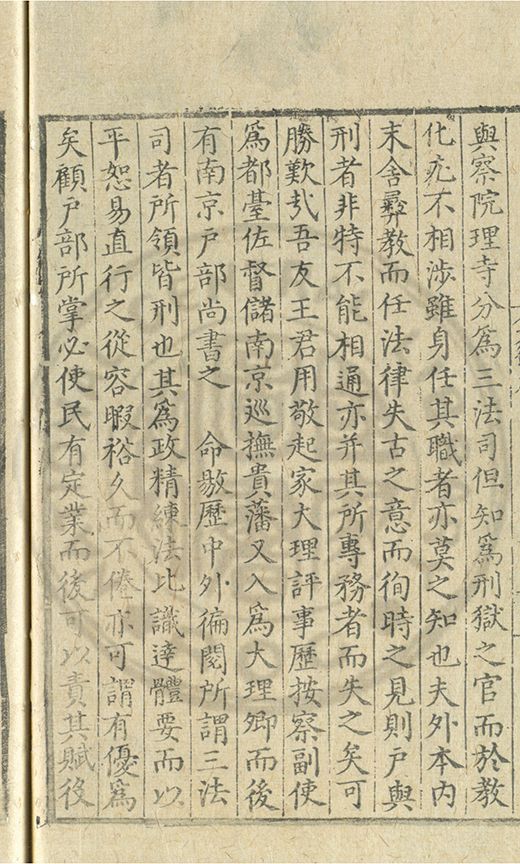 與察院理寺分爲三法司但知爲刑獄之官而於教
化尤不相涉雖身任其職者亦莫之知也夫外本内
末舍彛教而任法律失古之意而徇時之見則戸與
刑者非特不能相通亦并其所專務者而失之矣可
勝歎㢤吾友王君用敬起家大理評事歷按察副使
爲都臺佐督儲南京巡撫貴藩又入爲大理卿而後
有南京戸部尚書之　命敭歷中外徧閱所謂三法
司者所領皆刑也其爲政精練法比識達體要而以
平恕易直行之從容暇裕久而不倦亦可謂有優爲
矣顧戸部所掌必使民有定業而後可以責其賦役